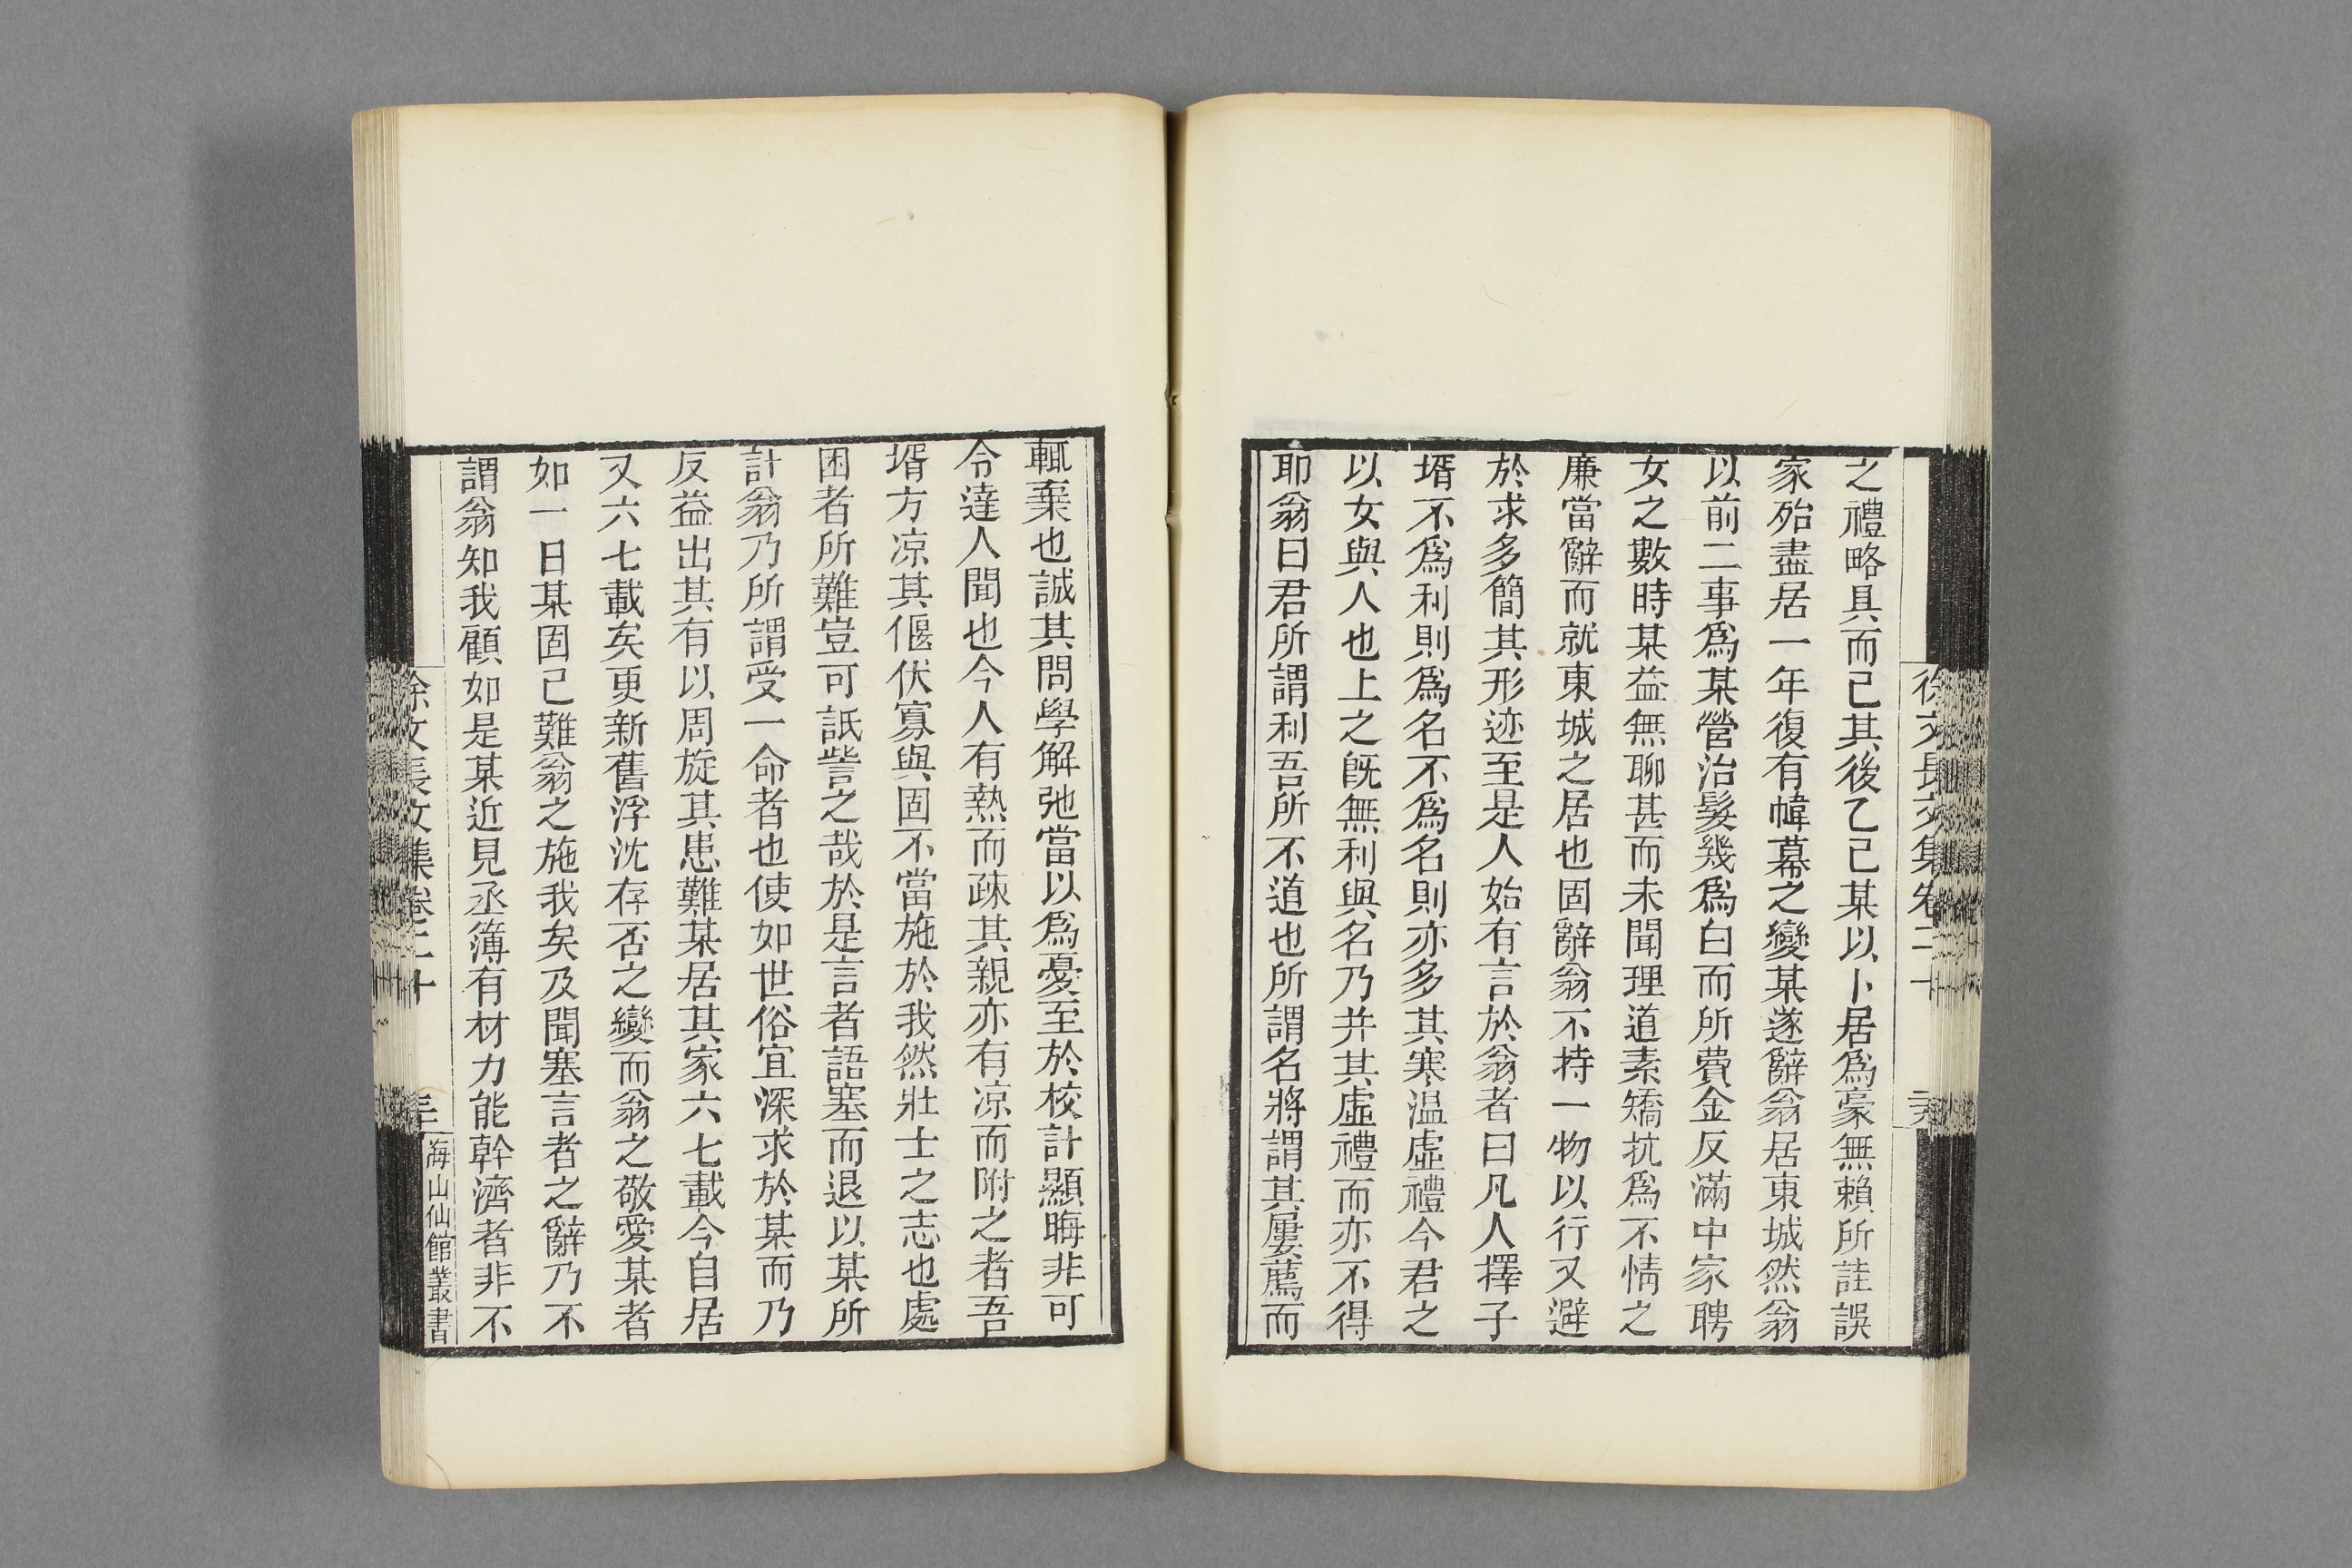 徐文長文集卷二十
之禮略具而已其後乙巳某以卜居爲豪無賴所詿誤
家殆盡居一年復有幃幕之變某遂辭翁居東城然翁
以前二事爲某營治髮幾爲白而所費金反滿中家聘
女之數時某益無聊甚而未聞理道素矯抗爲不情之
廉當辭而就東城之居也固辭翁不持一物以行又避
於求多簡其形迹至是人始有言於翁者曰凡人擇子
壻不爲利則爲名不爲名則亦多其寒温虛禮今君之
以女與人也上之旣無利與名乃并其虛禮而亦不得
耶翁曰君所謂利吾所不道也所謂名將謂其屢薦而
輒棄也誠其問學解弛當以爲憂至於校計顯晦非可
令達人聞也今人有熱而疎其親亦有凉而附之者吾
壻方凉其偃伏寡與固不當施於我然壯士之志也處
困者所難豈可訾之哉於是言者語塞而退以某所
計翁乃所謂受一命者也使如世俗宜深求於某而乃
反益出其有以周旋其患難某居其家六七載今自居
又六七載矣更新舊浮沈存否之變而翁之敬愛某者
如一日某固已難翁之施我矣及聞塞言者之辭乃不
謂翁知我顧如是某近見丞簿有材力能幹濟者非不
徐文長文集卷二十
海山仙館叢書